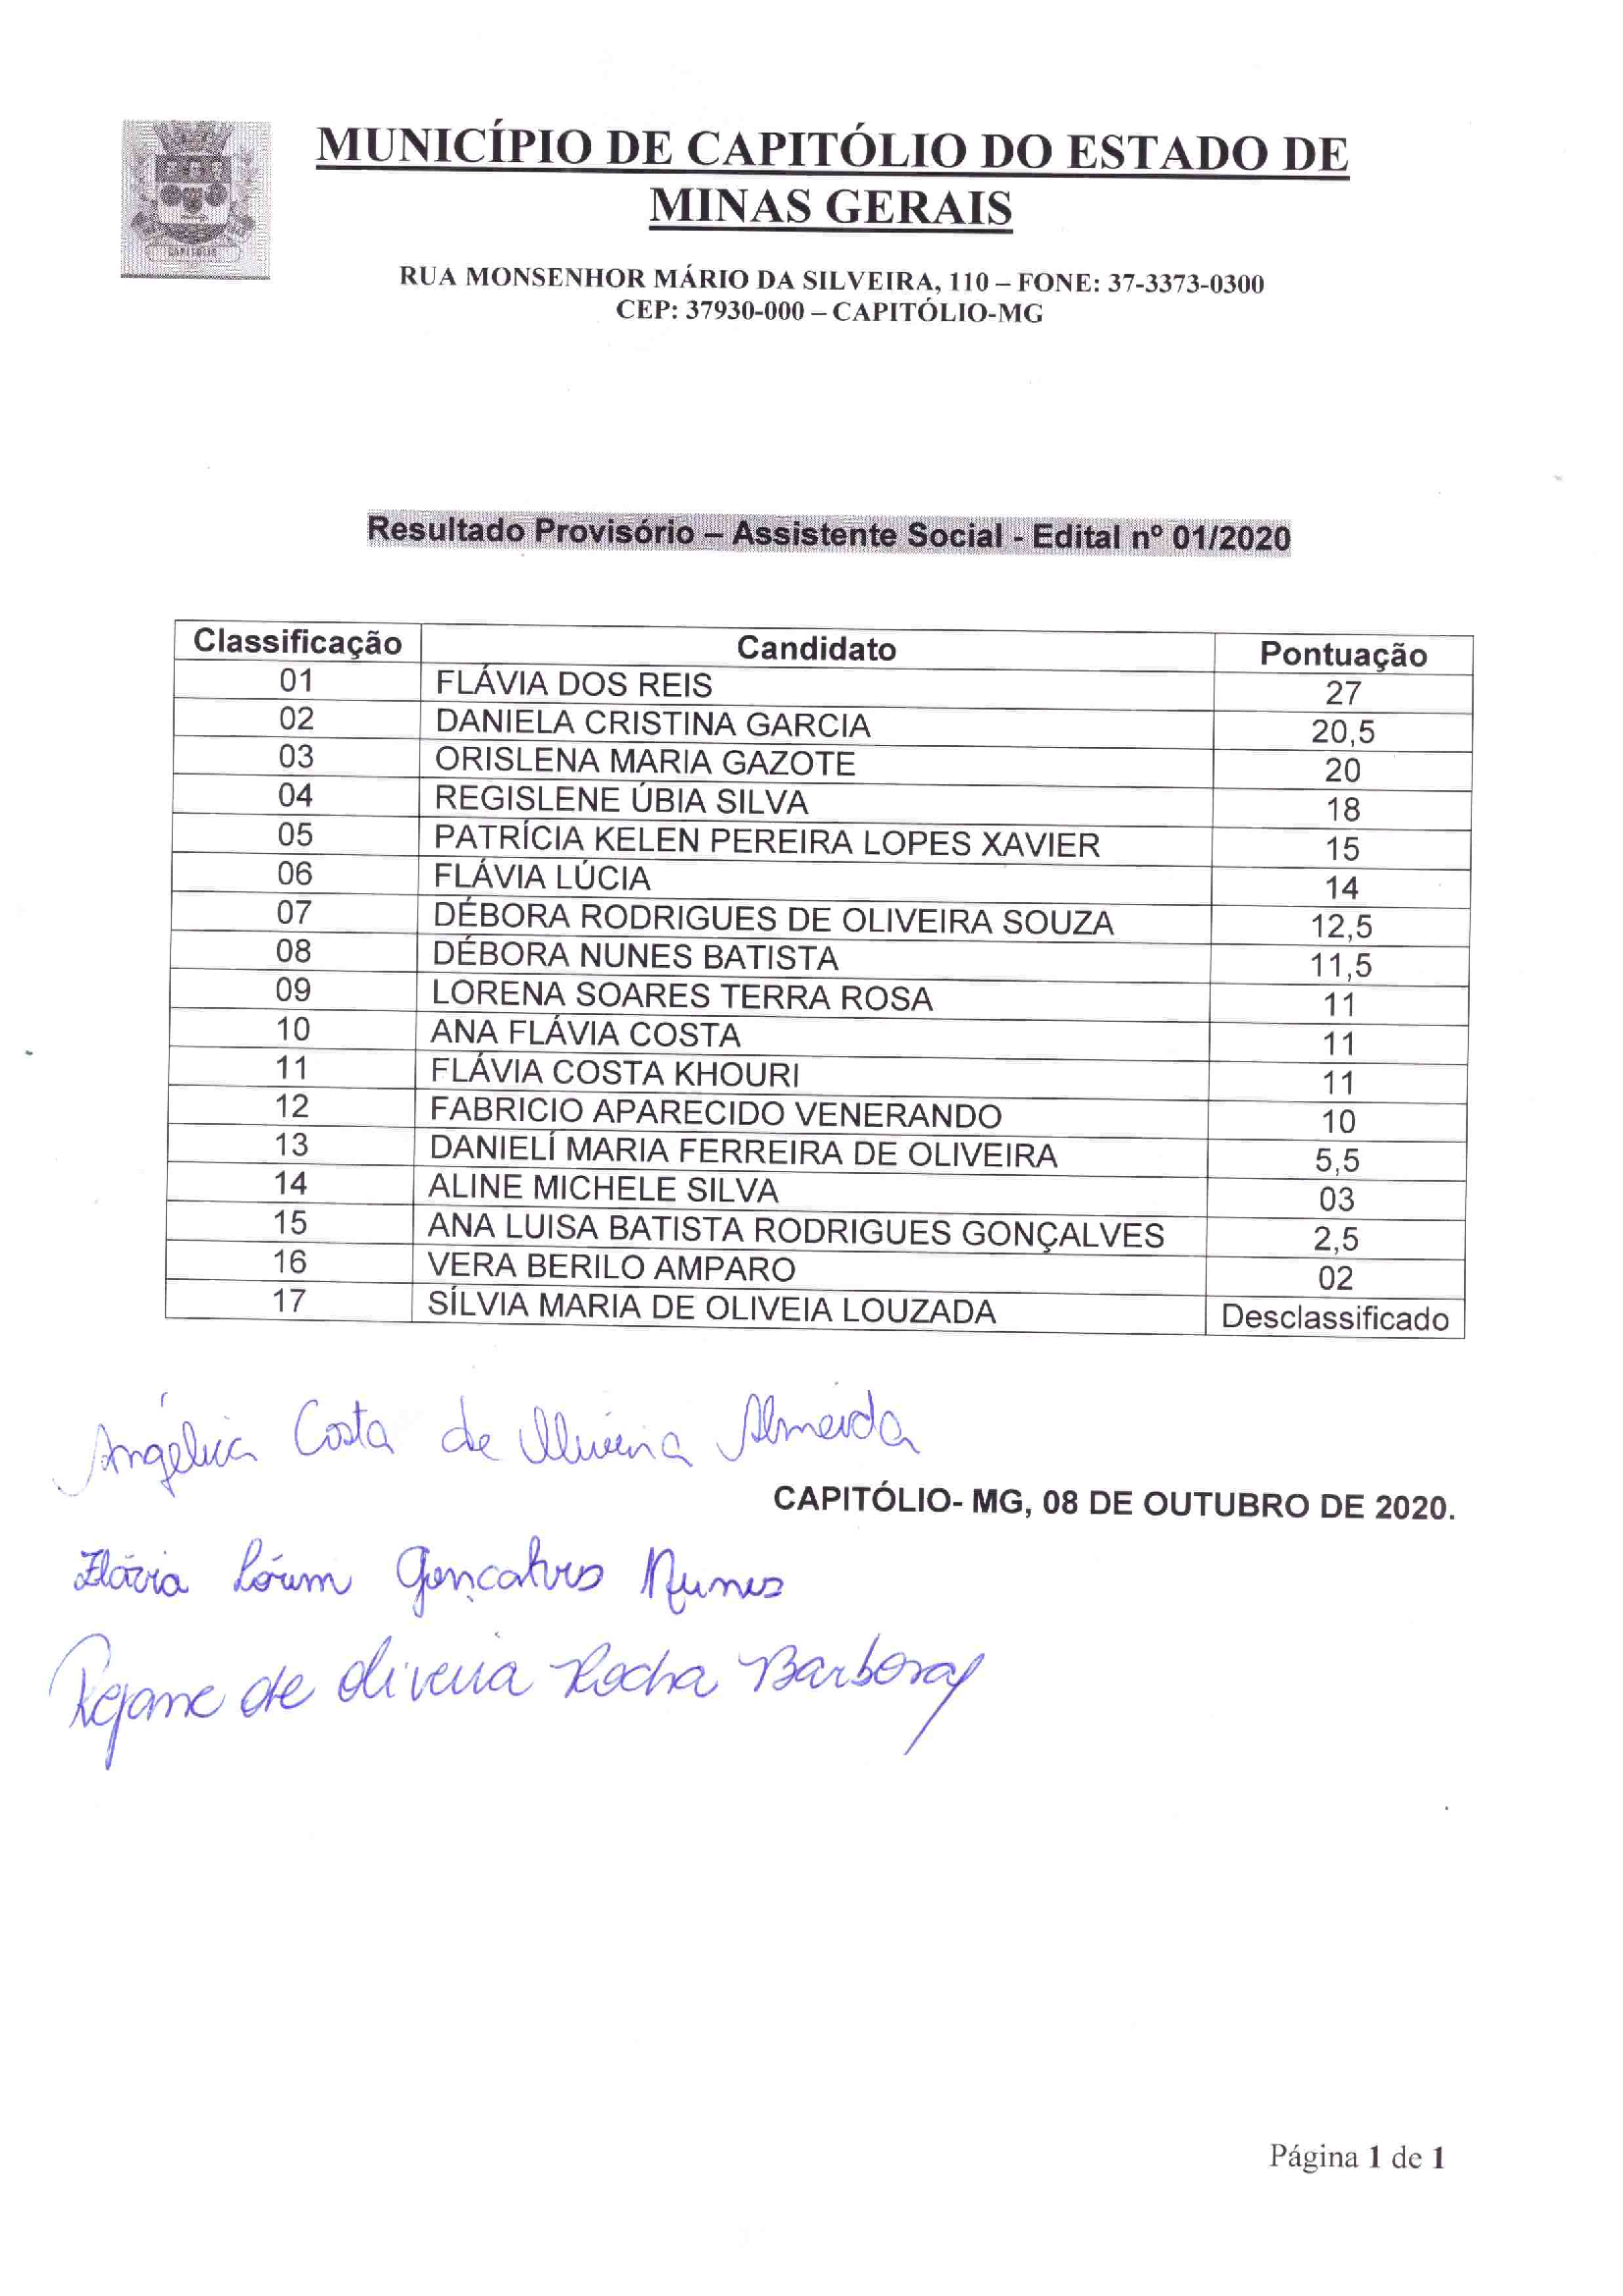 MUNICÍPIO DE CAPITÓLIO DO ESTADO DE
MINAS GERAIS
RUA MONSENHOR MÁRIO DA SILVEIRA, 110 – FONE: 37-3373-0300
CEP: 37930-000 – CAPITÓLIO-MG
CAPITÓLIO
Resultado Provisório – Assistente Social - Edital nº 01/2020
Classificação Candidato Pontuação
01 FLÁVIA DOS REIS 27
02 DANIELA CRISTINA GARCIA 20,5
03 ORISLENA MARIA GAZOTE 20
04 REGISLENE ÚBIA SILVA 18
05 PATRÍCIA KELEN PEREIRA LOPES XAVIER 15
06 FLÁVIA LÚCIA 14
07 DÉBORA RODRIGUES DE OLIVEIRA SOUZA 12,5
08 DÉBORA NUNES BATISTA 11,5
09 LORENA SOARES TERRA ROSA 11
10 ANA FLÁVIA COSTA 11
11 FLÁVIA COSTA KHOURI 11
12 FABRICIO APARECIDO VENERANDO 10
13 DANIELÍ MARIA FERREIRA DE OLIVEIRA 5,5
14 ALINE MICHELE SILVA 03
15 ANA LUISA BATISTA RODRIGUES GONÇALVES 2,5
16 VERA BERILO AMPARO 02
17 SÍLVIA MARIA DE OLIVEIA LOUZADA Desclassificado
Angélica Costa de Oliveira Almeida
CAPITÓLIO- MG, 08 DE OUTUBRO DE 2020.
Flávia Gonçalves Nunes
Rejane de Oliveira Rocha Barbosa
Página 1 de 1